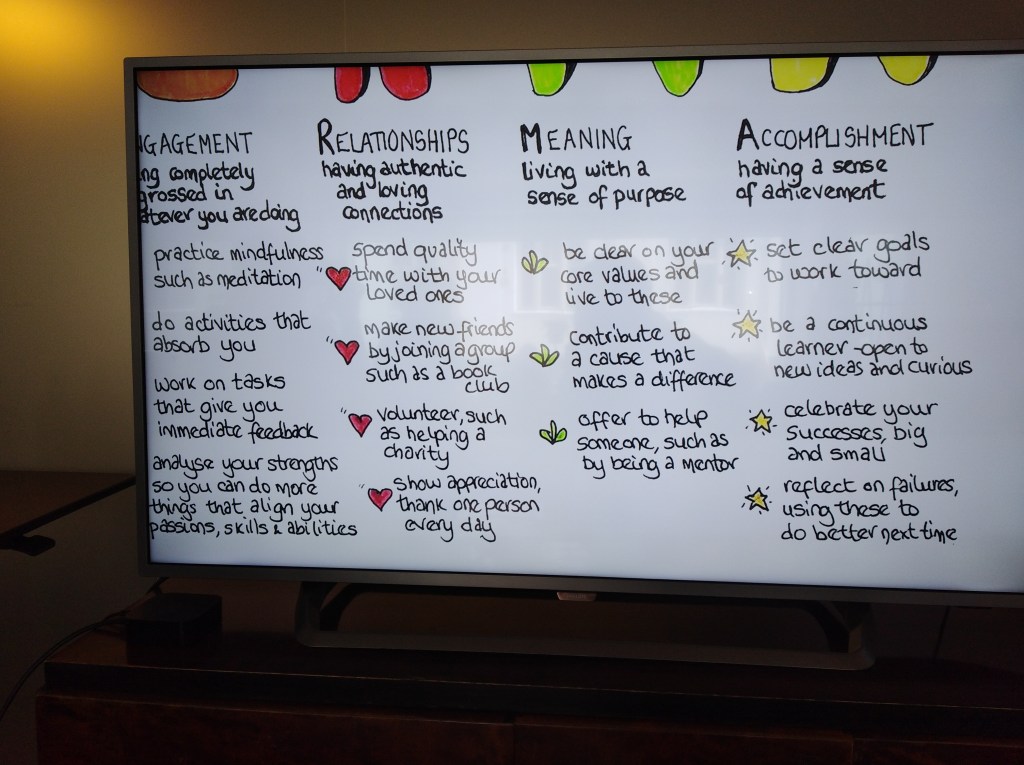 NGAGEMENT
ng completely
grossed in
atever you are doing
practice mindfulness
such as meditation
do activities that
absorb you
work on tasks
that give you
immediate feedback
analyse your strengths
so you can do more
things that align your
passions, skills & abilities
RELATIONSHIPS
having authentic
and loving
connections
spend quality
time with your
loved ones
make new friends
by joining a group
such as a book
club
volunteer, such
as helping a
charity
show appreciation,
thank one person
every day
MEANING
living with a
sense of purpose
be clear on your
core values and
live to these
contribute to
a cause that
makes a difference
offer to help
someone, such as
by being a mentor
ACCOMPLISHMENT
having a sense
of achievement
set clear goals
to work toward
be a continuous
learner - open to
new ideas and curious
celebrate your
successes, big
and small
reflect on failures,
using these to
do better next time